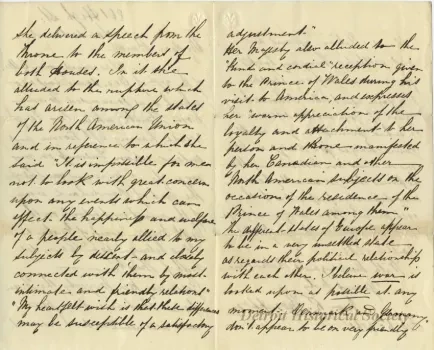 She delivered a speech from the
Throne to the members of
both Houses. In it she
alluded to the rupture which
had arisen among the states
of the North American Union
and in reference to which she
said "It is impossible for me
not to look with great concern
upon any events which can
affect the happiness and welfare
of a people nearly allied to my
subjects by descent - and closely
connected with them by most
intimate and friendly relations"
"My heartfelt wish is that these differences
may be susceptible of a satisfactory
adjustment."
Her Majesty also alluded to the
kind and cordial reception given
to the Prince of Wales during his
visit to America, and expresses
her warm appreciation of the
loyalty and attachment to her
person and throne manifested
by her Canadian and other
North American subjects on the
occasion of the residence of the
Prince of Wales among them"
The different states of Europe appear
to be in a very unsettled state
as regards their political relationship
with each other. I believe war is
looked upon as posible at any
Denmark and Germany
don't appear to be on very friendly
Detroit Historical Society